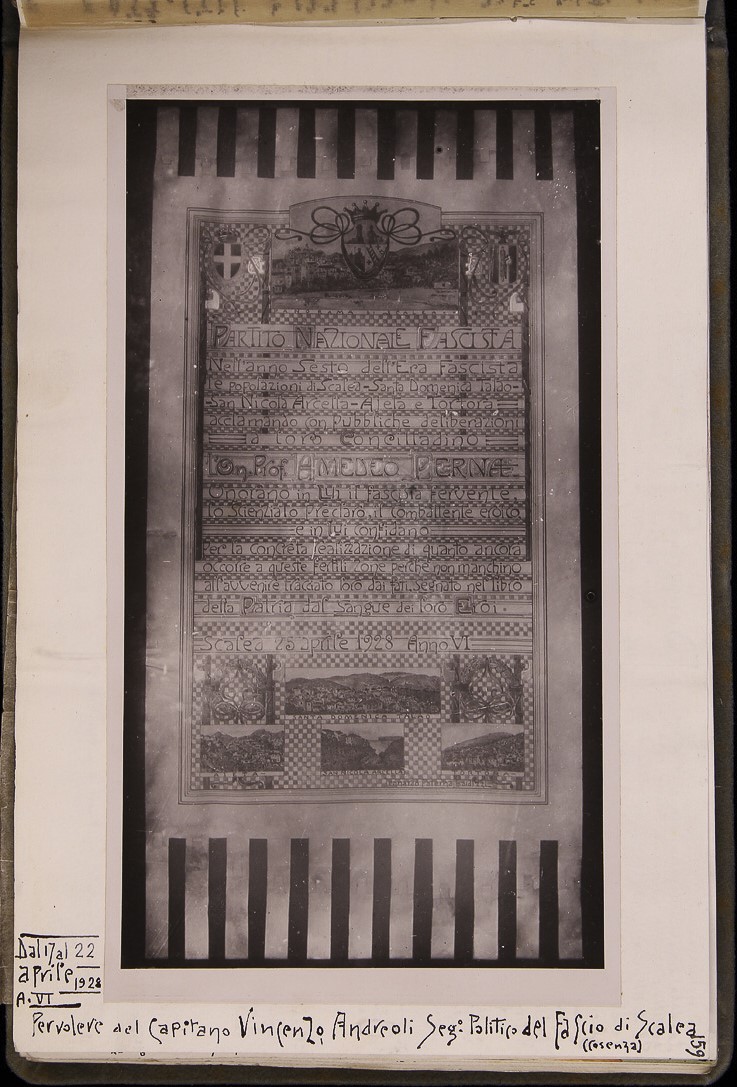 PARTITO NAZIONALE FASCISTA
Nell'anno Sesto dell'Era Fascista
le popolazioni di Scalea-Santa Domenica Talao-
-San Nicola Arcella-Aieta e Tortora
acclamando con Pubbliche deliberazioni
a loro Concittadino
l'On. Prof. AMEDEO PERNA
Onorano in Lui il fascista fervente,
lo Scienziato Preclaro, il combattente eroico
e in Lui confidano
Per la Concreta realizzazione di quanto ancora
occorre a queste fertili zone perchè non manchino
all'avvenire tracciato loro dai fati, segnato nel libro
della Patria dal Sangue dei loro Eroi.
Scalea 25 aprile 1928 Anno VI
SANTA DOMENICA TALAO
SAN NICOLA ARCELLA
Dal 17 al 22
aprile 1928
A. VI
Per volere del Capitano Vincenzo Andreoli Seg: Politico del Fascio di Scalea
(Cosenza)
59